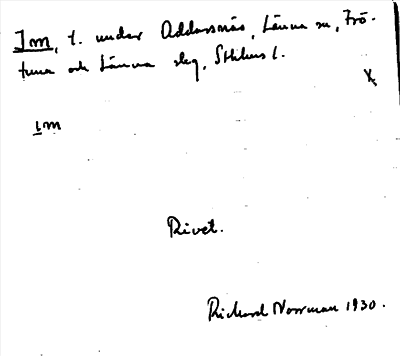 Im, t. under Addarsnäs, Länna sn, Frö-
tuna och Länna slg, Sthlms l.
X
im
Rivet.
Richard Norrman 1930.